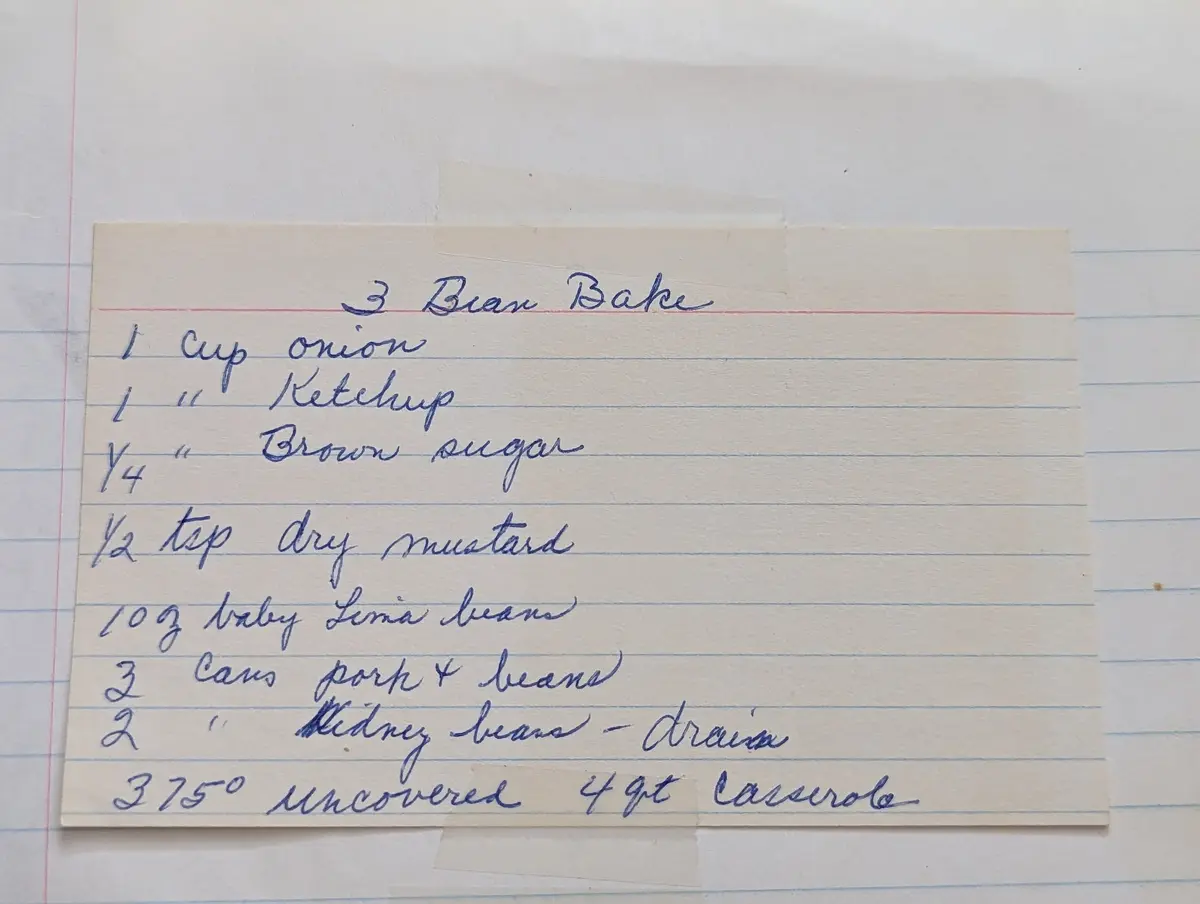 3 Bean Bake
1 cup onion
1 " Ketchup
1/4 " Brown sugar
1/2 tsp dry mustard
10 oz baby Lima beans
3 cans pork & beans
2 " Kidney beans - drain
375° uncovered 4 qt casserole